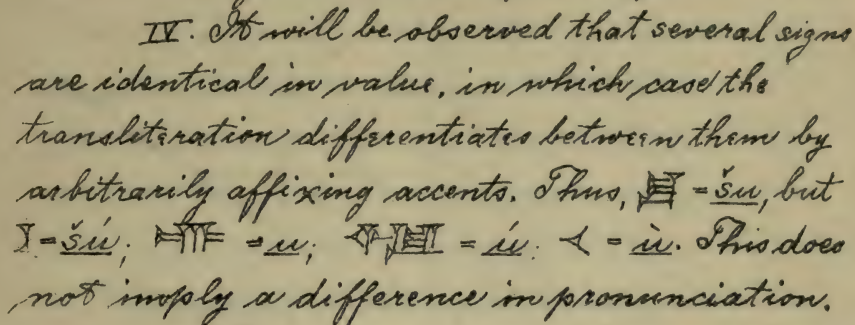 IV. It will be observed that several signs
are identical in value, in which case the
transliteration differentiates between them by
arbitrarily affixing accents. Thus, 𒋗 = šu, but
𒋙 = šú; 𒌑 = u; 𒅇 = ú; 𒌋 = ù. This does
not imply a difference in pronunciation.